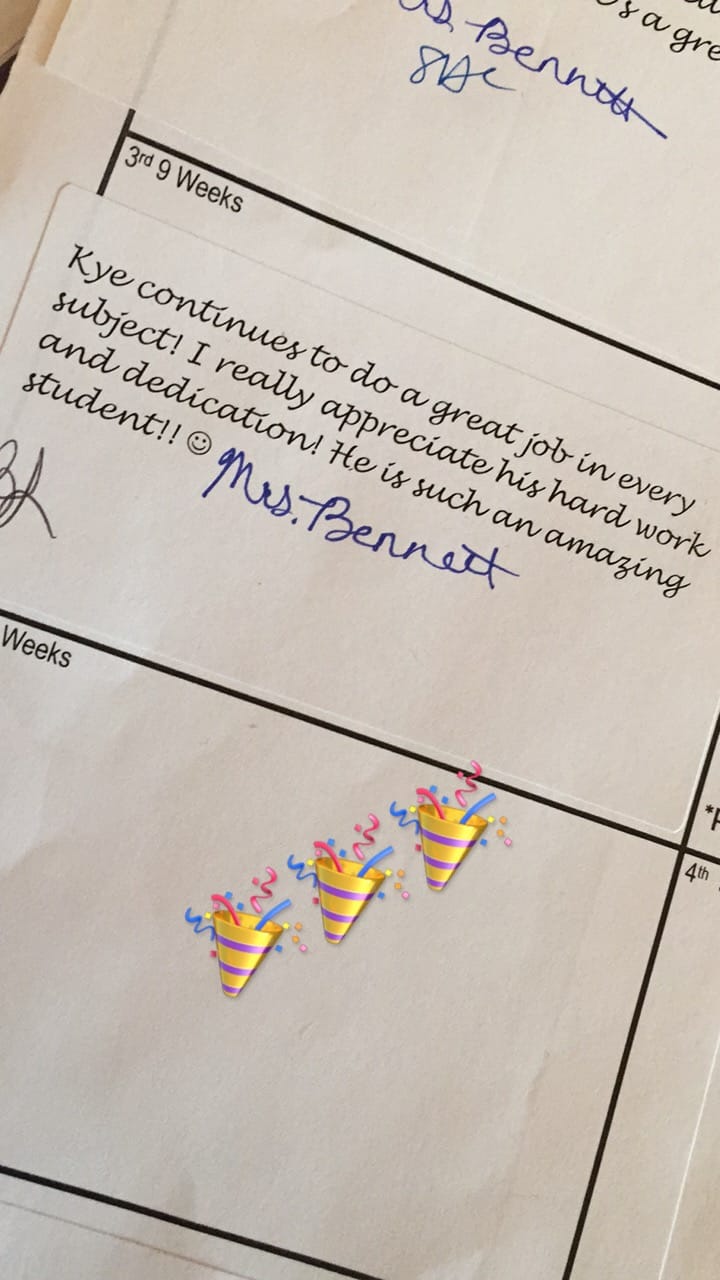 s a gre
s. Bennett
3rd 9 Weeks
Kye continues to do a great job in every
subject! I really appreciate his hard work
and dedication! He is such an amazing
student!! ☺
Mrs. Bennett
Weeks
4th